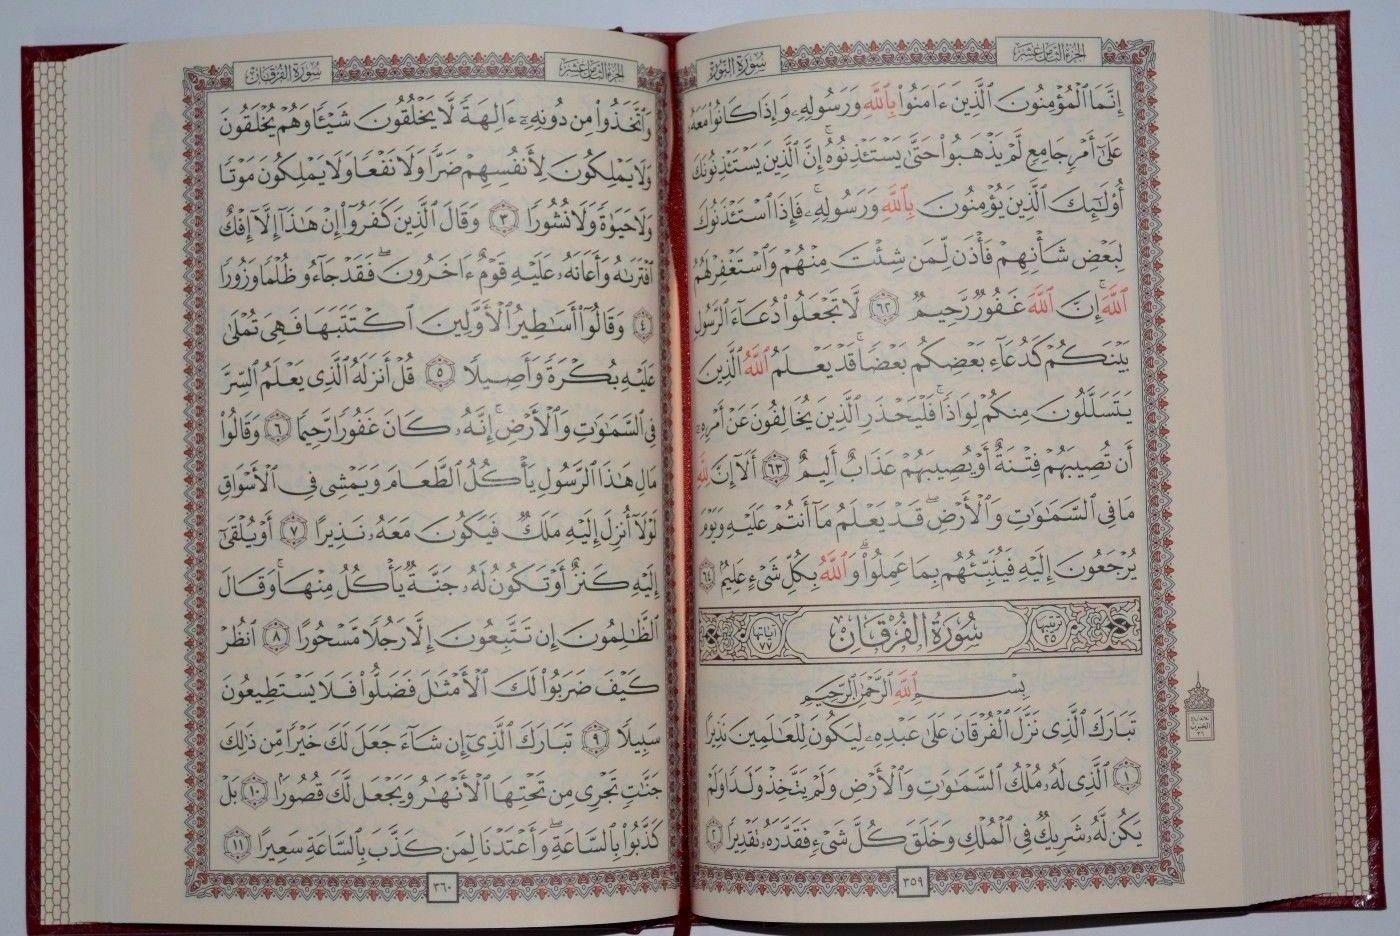 الجزء الثامن عشر
سورة النور
إِنَّمَا ٱلْمُؤْمِنُونَ ٱلَّذِينَ ءَامَنُوا۟ بِٱللَّهِ وَرَسُولِهِۦ وَإِذَا كَانُوا۟ مَعَهُۥ
عَلَىٰٓ أَمْرٍ جَامِعٍ لَّمْ يَذْهَبُوا۟ حَتَّىٰ يَسْتَـْٔذِنُوهُ ۚ إِنَّ ٱلَّذِينَ يَسْتَـْٔذِنُونَكَ
أُو۟لَـٰٓئِكَ ٱلَّذِينَ يُؤْمِنُونَ بِٱللَّهِ وَرَسُولِهِۦ ۚ فَإِذَا ٱسْتَـْٔذَنُوكَ
لِبَعْضِ شَأْنِهِمْ فَأْذَن لِّمَن شِئْتَ مِنْهُمْ وَٱسْتَغْفِرْ لَهُمُ
ٱللَّهَ ۚ إِنَّ ٱللَّهَ غَفُورٌ رَّحِيمٌ ٦٢ لَّا تَجْعَلُوا۟ دُعَآءَ ٱلرَّسُولِ
بَيْنَكُمْ كَدُعَآءِ بَعْضِكُم بَعْضًا ۚ قَدْ يَعْلَمُ ٱللَّهُ ٱلَّذِينَ
يَتَسَلَّلُونَ مِنكُمْ لِوَاذًا ۚ فَلْيَحْذَرِ ٱلَّذِينَ يُخَالِفُونَ عَنْ أَمْرِهِۦٓ
أَن تُصِيبَهُمْ فِتْنَةٌ أَوْ يُصِيبَهُمْ عَذَابٌ أَلِيمٌ ٦٣ أَلَآ إِنَّ لِلَّهِ
مَا فِى ٱلسَّمَـٰوَٰتِ وَٱلْأَرْضِ ۖ قَدْ يَعْلَمُ مَآ أَنتُمْ عَلَيْهِ وَيَوْمَ
يُرْجَعُونَ إِلَيْهِ فَيُنَبِّئُهُم بِمَا عَمِلُوا۟ ۗ وَٱللَّهُ بِكُلِّ شَىْءٍ عَلِيمٌۢ ٦٤
ترتيبها ٢٥ سُورَةُ الفُرْقَانِ آياتها ٧٧
بِسْمِ ٱللَّهِ ٱلرَّحْمَـٰنِ ٱلرَّحِيمِ
تَبَارَكَ ٱلَّذِى نَزَّلَ ٱلْفُرْقَانَ عَلَىٰ عَبْدِهِۦ لِيَكُونَ لِلْعَـٰلَمِينَ نَذِيرًا
١ ٱلَّذِى لَهُۥ مُلْكُ ٱلسَّمَـٰوَٰتِ وَٱلْأَرْضِ وَلَمْ يَتَّخِذْ وَلَدًا وَلَمْ
يَكُن لَّهُۥ شَرِيكٌ فِى ٱلْمُلْكِ وَخَلَقَ كُلَّ شَىْءٍ فَقَدَّرَهُۥ تَقْدِيرًا ٢
٣٥٩
الجزء الثامن عشر
سورة الفرقان
وَٱتَّخَذُوا۟ مِن دُونِهِۦٓ ءَالِهَةً لَّا يَخْلُقُونَ شَيْـًٔا وَهُمْ يُخْلَقُونَ
وَلَا يَمْلِكُونَ لِأَنفُسِهِمْ ضَرًّا وَلَا نَفْعًا وَلَا يَمْلِكُونَ مَوْتًا
وَلَا حَيَوٰةً وَلَا نُشُورًا ٣ وَقَالَ ٱلَّذِينَ كَفَرُوٓا۟ إِنْ هَـٰذَآ إِلَّآ إِفْكٌ
ٱفْتَرَىٰهُ وَأَعَانَهُۥ عَلَيْهِ قَوْمٌ ءَاخَرُونَ ۖ فَقَدْ جَآءُو ظُلْمًا وَزُورًا
٤ وَقَالُوٓا۟ أَسَـٰطِيرُ ٱلْأَوَّلِينَ ٱكْتَتَبَهَا فَهِىَ تُمْلَىٰ
عَلَيْهِ بُكْرَةً وَأَصِيلًا ٥ قُلْ أَنزَلَهُ ٱلَّذِى يَعْلَمُ ٱلسِّرَّ
فِى ٱلسَّمَـٰوَٰتِ وَٱلْأَرْضِ ۚ إِنَّهُۥ كَانَ غَفُورًا رَّحِيمًا ٦ وَقَالُوا۟
مَالِ هَـٰذَا ٱلرَّسُولِ يَأْكُلُ ٱلطَّعَامَ وَيَمْشِى فِى ٱلْأَسْوَاقِ
لَوْلَآ أُنزِلَ إِلَيْهِ مَلَكٌ فَيَكُونَ مَعَهُۥ نَذِيرًا ٧ أَوْ يُلْقَىٰٓ
إِلَيْهِ كَنزٌ أَوْ تَكُونُ لَهُۥ جَنَّةٌ يَأْكُلُ مِنْهَا ۚ وَقَالَ
ٱلظَّـٰلِمُونَ إِن تَتَّبِعُونَ إِلَّا رَجُلًا مَّسْحُورًا ٨ ٱنظُرْ
كَيْفَ ضَرَبُوا۟ لَكَ ٱلْأَمْثَـٰلَ فَضَلُّوا۟ فَلَا يَسْتَطِيعُونَ
سَبِيلًا ٩ تَبَارَكَ ٱلَّذِىٓ إِن شَآءَ جَعَلَ لَكَ خَيْرًا مِّن ذَٰلِكَ
جَنَّـٰتٍ تَجْرِى مِن تَحْتِهَا ٱلْأَنْهَـٰرُ وَيَجْعَل لَّكَ قُصُورًۢا ١٠ بَلْ
كَذَّبُوا۟ بِٱلسَّاعَةِ ۖ وَأَعْتَدْنَا لِمَن كَذَّبَ بِٱلسَّاعَةِ سَعِيرًا ١١
٣٦٠